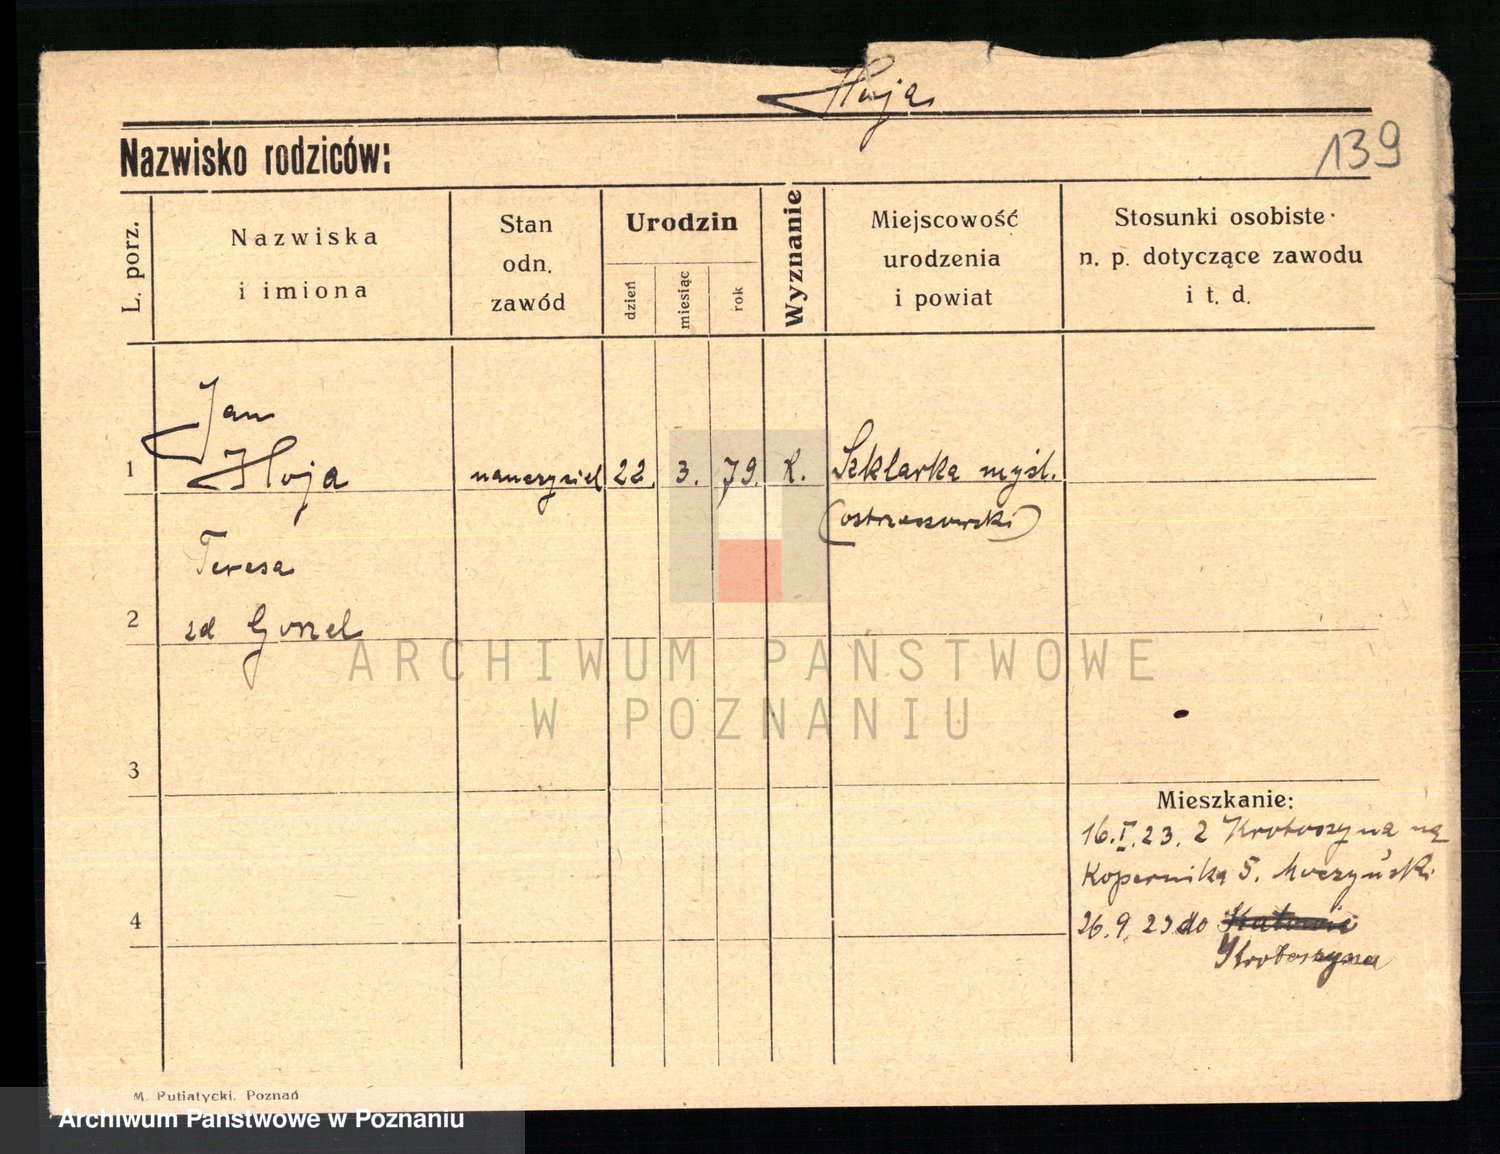 Hoja
139
Nazwisko rodziców:
L. porz.
Nazwiska
i imiona
Stan
odn.
zawód
Urodzin
dzień
miesiąc
rok
Wyznanie
Miejscowość
urodzenia
i powiat
Stosunki osobiste
n. p. dotyczące zawodu
i t. d.
Jan
1 Hoja nauczyciel 22. 3. 79. k. Szklarka myśl.
(ostrzeszowski)
Teresa
2 zd Gorzel
3
Mieszkanie:
16.I.23. z Krotoszyna na
Kopernika 5. Moczyński
4 26.9.23 do
Krotoszyna
M. Putiatycki, Poznań
ARCHIWUM PAŃSTWOWE
W POZNANIU
Archiwum Państwowe w Poznaniu